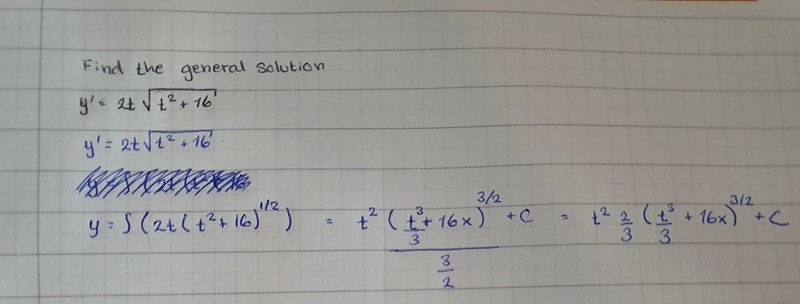 Find the general solution
y' = 2t √(t² + 16)
y' = 2t √(t² + 16)
y = ∫ (2t (t² + 16)^(1/2)) = t² (t³/3 + 16x)^(3/2) / (3/2) + C = t² 2/3 (t³/3 + 16x)^(3/2) + C